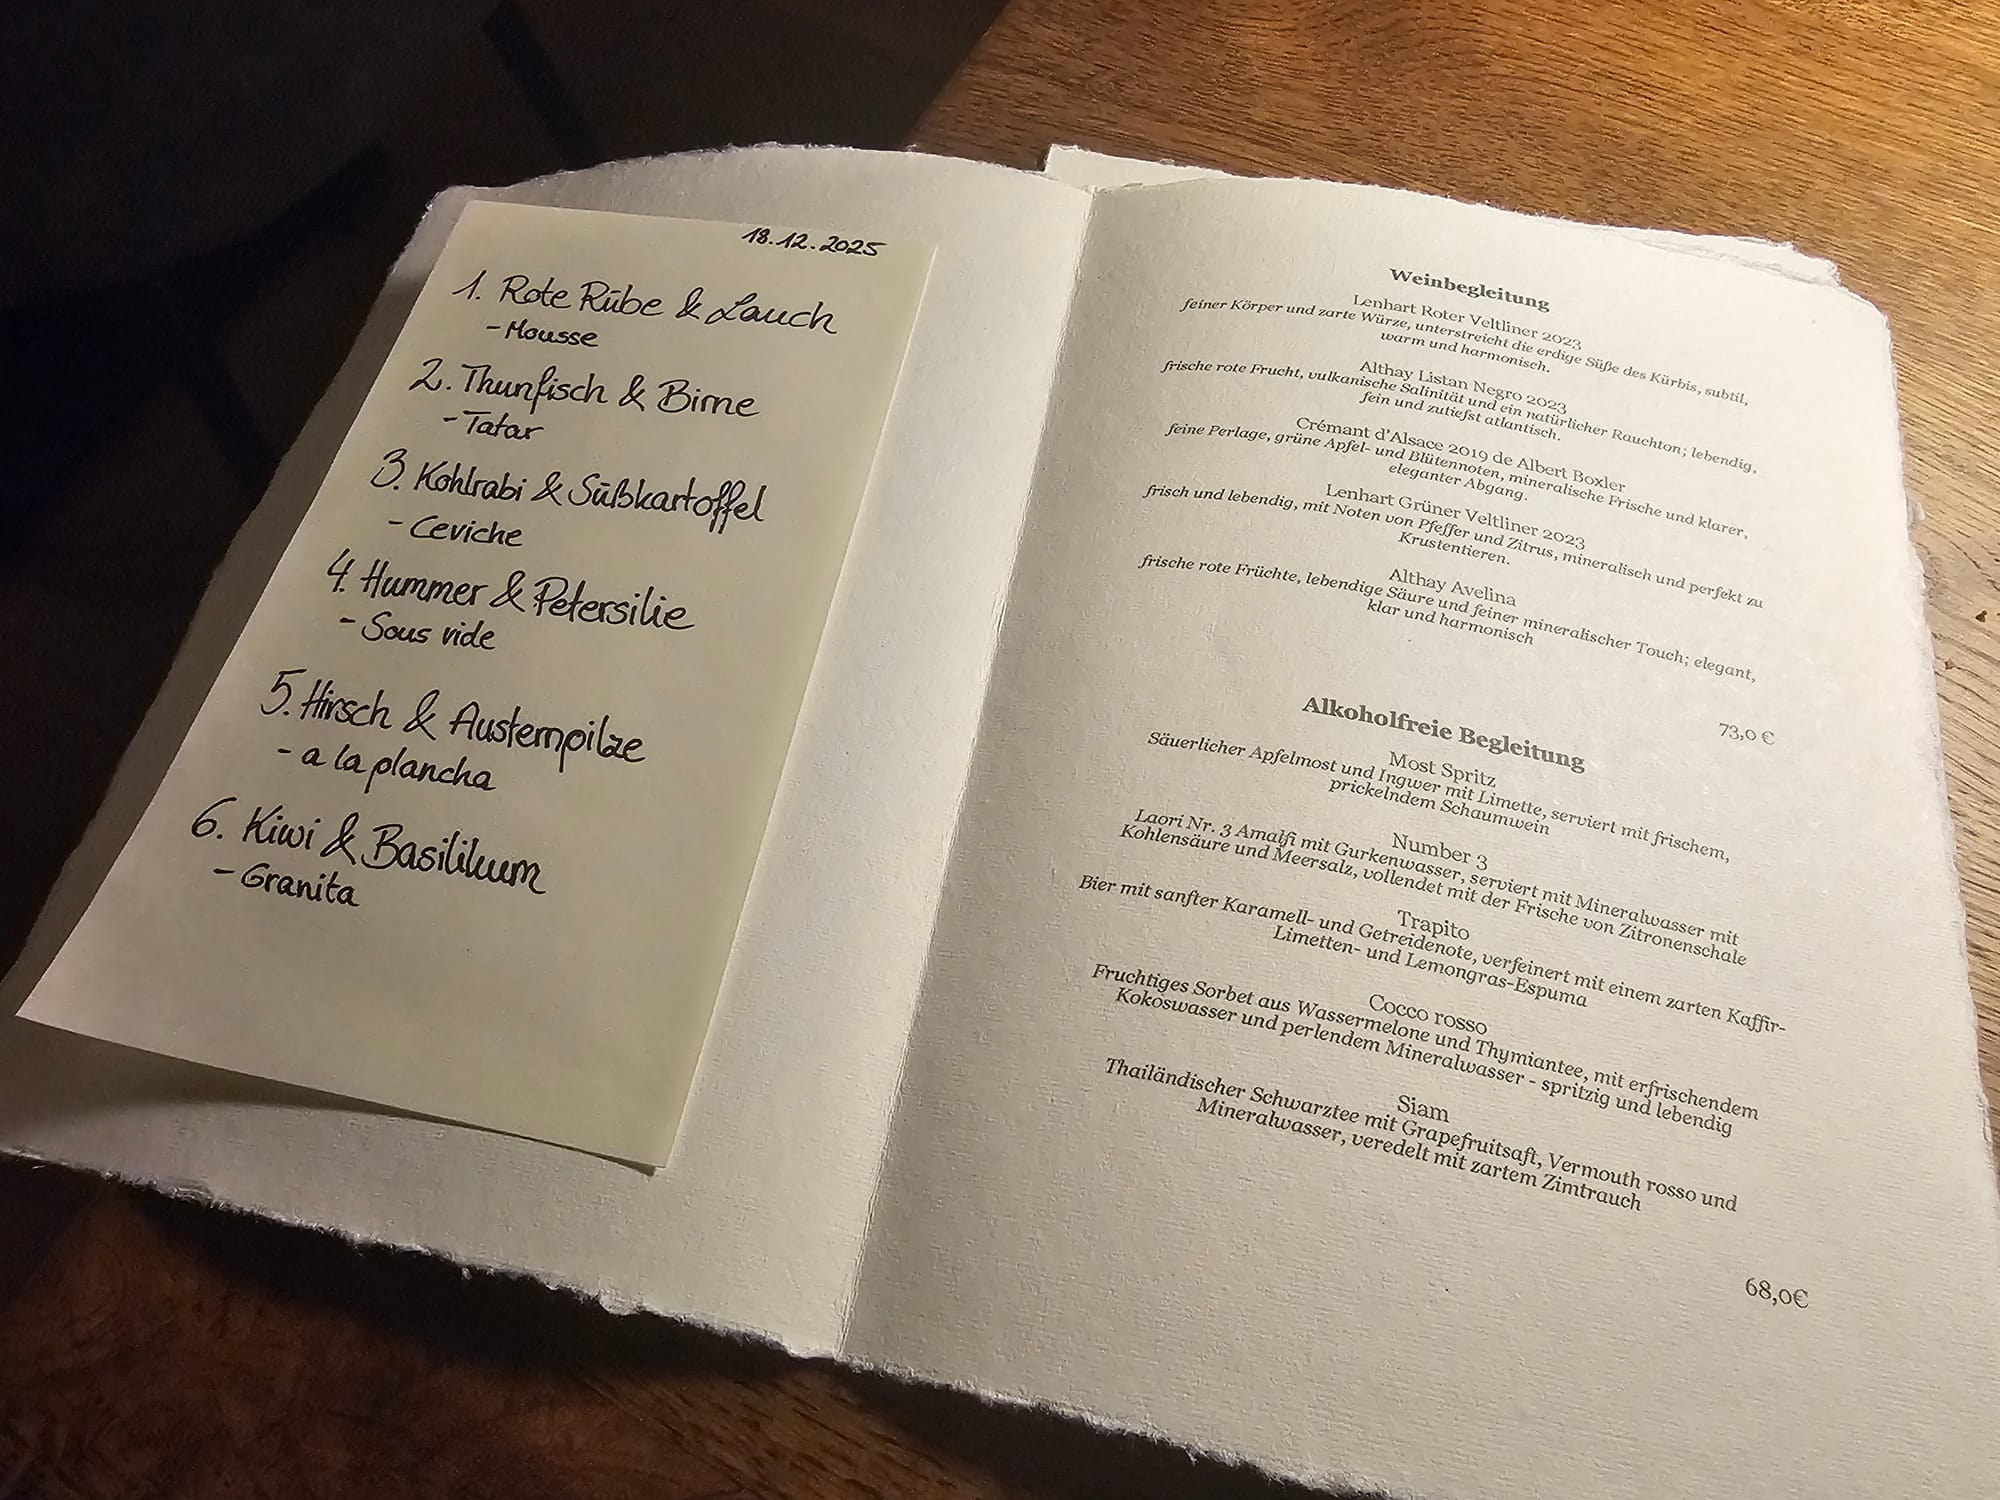 18.12.2025
1. Rote Rübe & Lauch
- Mousse
2. Thunfisch & Birne
- Tatar
3. Kohlrabi & Süßkartoffel
- Ceviche
4. Hummer & Petersilie
- Sous vide
5. Hirsch & Austernpilze
- a la plancha
6. Kiwi & Basilikum
- Granita
Weinbegleitung
Lenhart Roter Veltliner 2023
feiner Körper und zarte Würze, unterstreicht die erdige Süße des Kürbis, subtil,
warm und harmonisch.
Althay Listan Negro 2023
frische rote Frucht, vulkanische Salinität und ein natürlicher Rauchton; lebendig,
fein und zutiefst atlantisch.
Crémant d'Alsace 2019 de Albert Boxler
feine Perlage, grüne Apfel- und Blütennoten, mineralische Frische und klarer,
eleganter Abgang.
Lenhart Grüner Veltliner 2023
frisch und lebendig, mit Noten von Pfeffer und Zitrus, mineralisch und perfekt zu
Krustentieren.
Althay Avelina
frische rote Früchte, lebendige Säure und feiner mineralischer Touch; elegant,
klar und harmonisch
73,0 €
Alkoholfreie Begleitung
Most Spritz
Säuerlicher Apfelmost und Ingwer mit Limette, serviert mit frischem,
prickelndem Schaumwein
Number 3
Laori Nr. 3 Amalfi mit Gurkenwasser, serviert mit Mineralwasser mit
Kohlensäure und Meersalz, vollendet mit der Frische von Zitronenschale
Trapito
Bier mit sanfter Karamell- und Getreidenote, verfeinert mit einem zarten Kaffir-
Limetten- und Lemongras-Espuma
Cocco rosso
Fruchtiges Sorbet aus Wassermelone und Thymiantee, mit erfrischendem
Kokoswasser und perlendem Mineralwasser - spritzig und lebendig
Siam
Thailändischer Schwarztee mit Grapefruitsaft, Vermouth rosso und
Mineralwasser, veredelt mit zartem Zimtrauch
68,0€